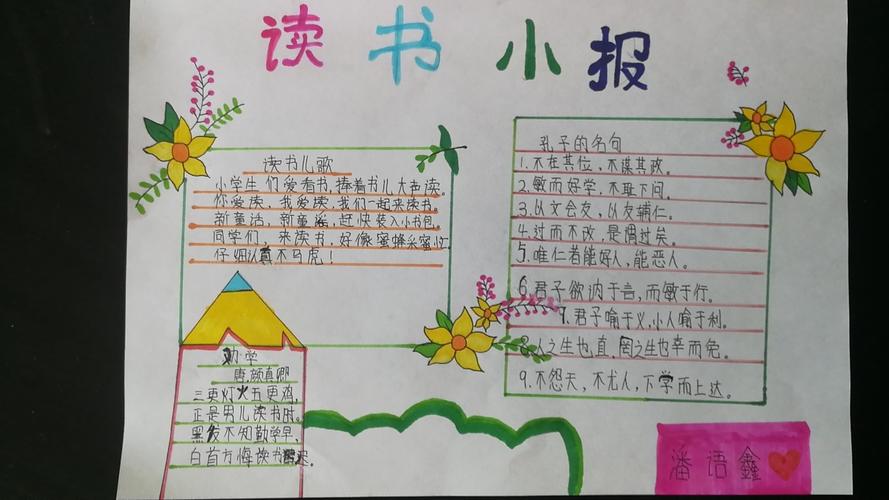 读书小报
读书儿歌
小学生们爱看书,捧着书儿大声读。
你爱读,我爱读,我们一起来读书。
新童话,新童谣,赶快装入小书包。
同学们,来读书,好像蜜蜂采蜜忙
仔细认真不马虎!
劝学
唐.颜真卿
三更灯火五更鸡,
正是男儿读书时。
黑发不知勤学早,
白首方悔读书迟。
孔子的名句
1.不在其位,不谋其政。
2.敏而好学,不耻下问。
3.以文会友,以友辅仁。
4.过而不改,是谓过矣。
5.唯仁者能好人,能恶人。
6.君子欲讷于言,而敏于行。
7.君子喻于义,小人喻于利。
8.人之生也直,罔之生也幸而免。
9.不怨天,不尤人,下学而上达。
潘语鑫